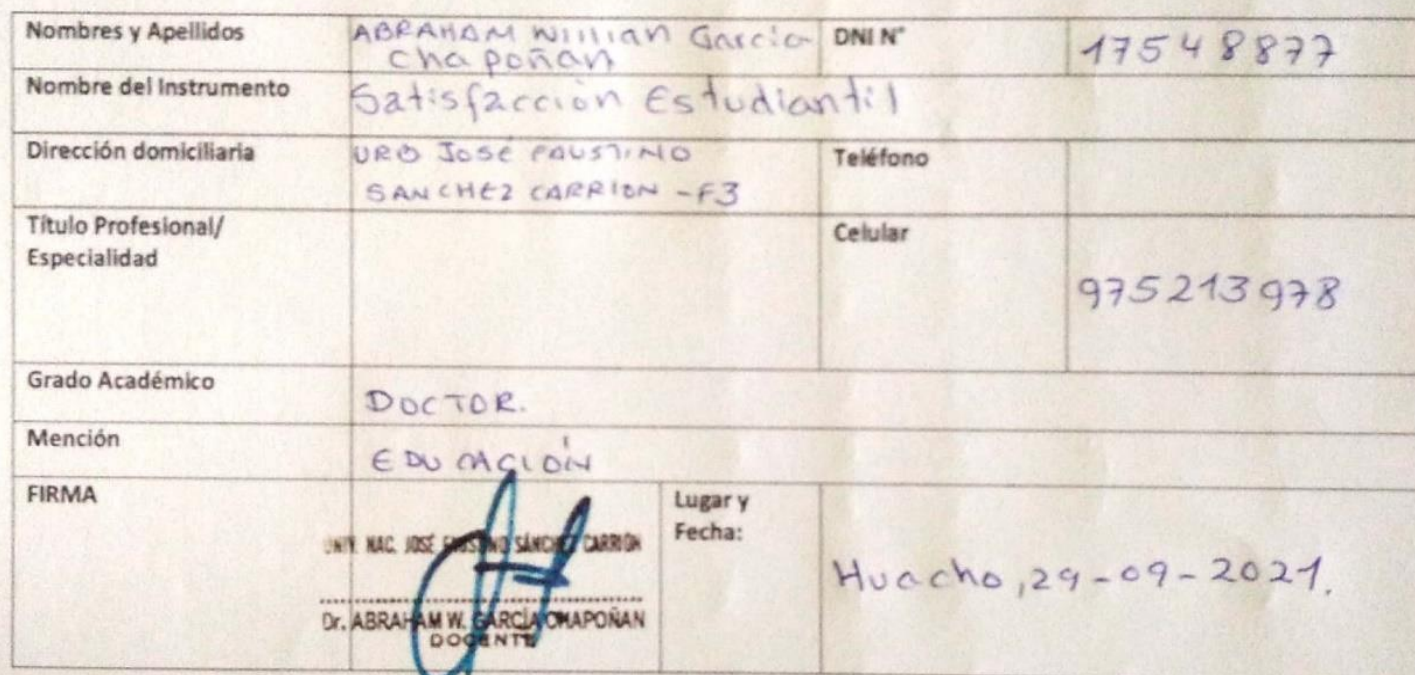 Nombres y Apellidos
ABRAHAM Willian García
Chapoñan
DNI N°
17548877
Nombre del Instrumento
Satisfacción Estudiantil
Dirección domiciliaria
URB JOSÉ FAUSTINO
SANCHEZ CARRION - F3
Teléfono
Título Profesional/
Especialidad
Celular
975213978
Grado Académico
DOCTOR.
Mención
EDUCACIÓN
FIRMA
UNIV. NAC. JOSÉ FAUSTINO SÁNCHEZ CARRIÓN
Dr. ABRAHAM W. GARCÍA CHAPOÑAN
DOCENTE
Lugar y
Fecha:
Huacho, 29-09-2021.